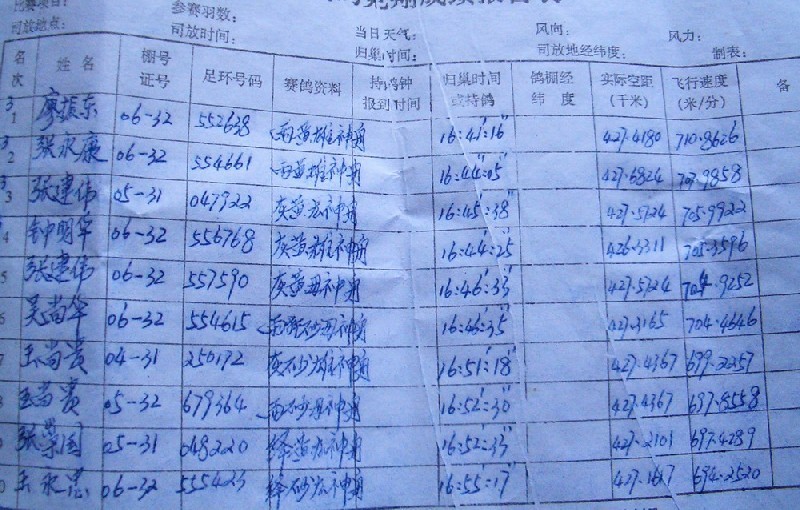 参赛羽数：
司放地点： 司放时间： 当日天气： 风向： 风力：
归巢时间： 司放地经纬度： 制表：
名次 姓名 棚号证号 足环号码 赛鸽资料 持鸽钟报到时间 归巢时间或持鸽 鸽棚经纬度 实际空距(千米) 飞行速度(米/分) 备
1 廖振东 06-32 552638 雨黄雄神舟 16:41:16 427.4180 710.8626
2 张永康 06-32 554661 雨黄雄神舟 16:44:05 427.6824 707.9858
3 张建伟 05-31 047922 灰黄雄神舟 16:45:38 427.5724 705.9922
4 钟明华 06-32 556768 灰黄雄神舟 16:44:25 426.3311 705.3596
5 张建伟 06-32 557590 灰黄雨神舟 16:46:33 427.5724 704.9252
6 吴尚华 06-32 554615 16:46:35 427.3165 704.4646
7 王尚贵 04-31 250172 灰砂雄神舟 16:51:18 427.4367 699.2257
8 王尚贵 05-32 679364 16:52:30 427.4367 697.8558
9 张荣国 05-31 048220 绛黄雄神舟 16:52:33 427.2101 697.4289
06-32 555423 绛砂雄神舟 16:55:17 427.1647 694.2520